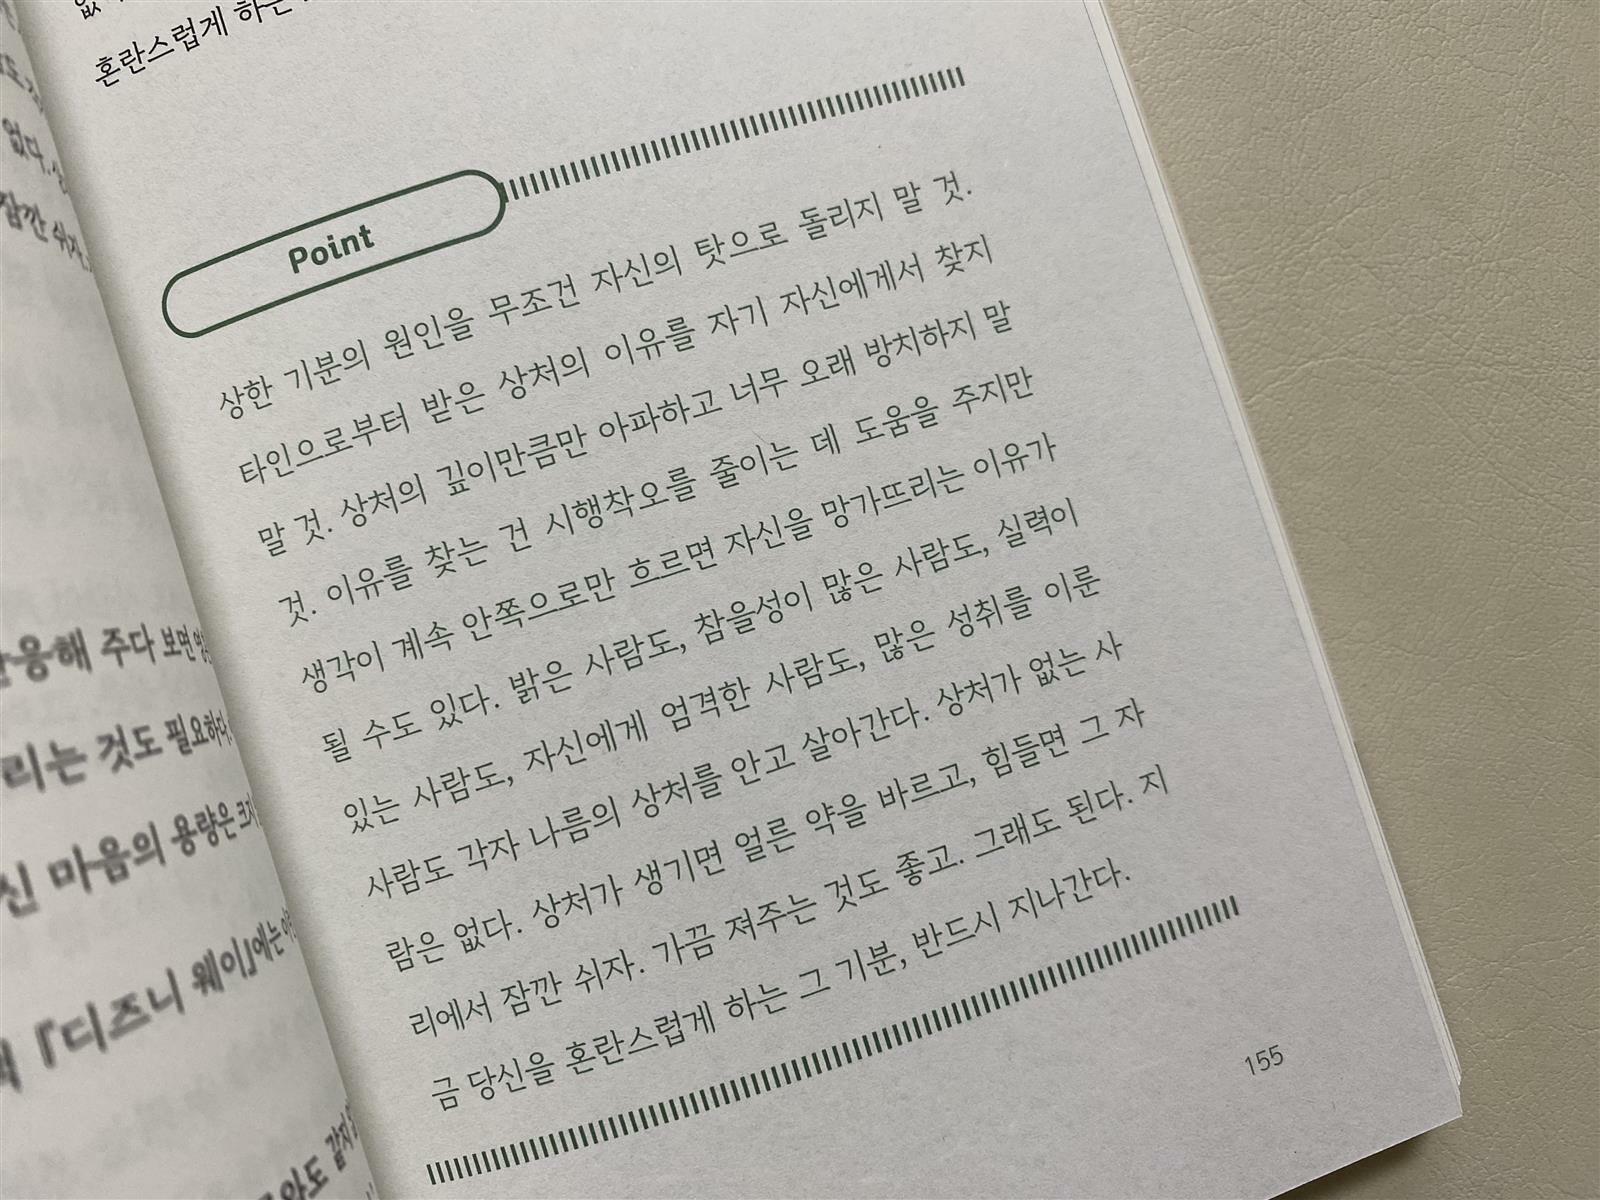 없다.
잠깐 쉬자.
응해 주다 보면
리는 것도 필요하다.
신 마음의 용량은 크지
『디즈니 웨이』에는
혼란스럽게 하는
Point
상한 기분의 원인을 무조건 자신의 탓으로 돌리지 말 것.
타인으로부터 받은 상처의 이유를 자기 자신에게서 찾지
말 것. 상처의 깊이만큼만 아파하고 너무 오래 방치하지 말
것. 이유를 찾는 건 시행착오를 줄이는 데 도움을 주지만
생각이 계속 안쪽으로만 흐르면 자신을 망가뜨리는 이유가
될 수도 있다. 밝은 사람도, 참을성이 많은 사람도, 실력이
있는 사람도, 자신에게 엄격한 사람도, 많은 성취를 이룬
사람도 각자 나름의 상처를 안고 살아간다. 상처가 없는 사
람은 없다. 상처가 생기면 얼른 약을 바르고, 힘들면 그 자
리에서 잠깐 쉬자. 가끔 져주는 것도 좋고. 그래도 된다. 지
금 당신을 혼란스럽게 하는 그 기분, 반드시 지나간다.
155